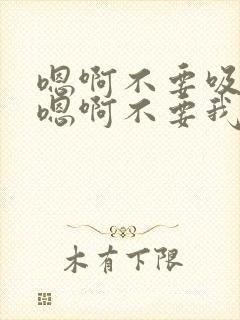 嗯啊不要吸
嗯啊不要我
木有下限